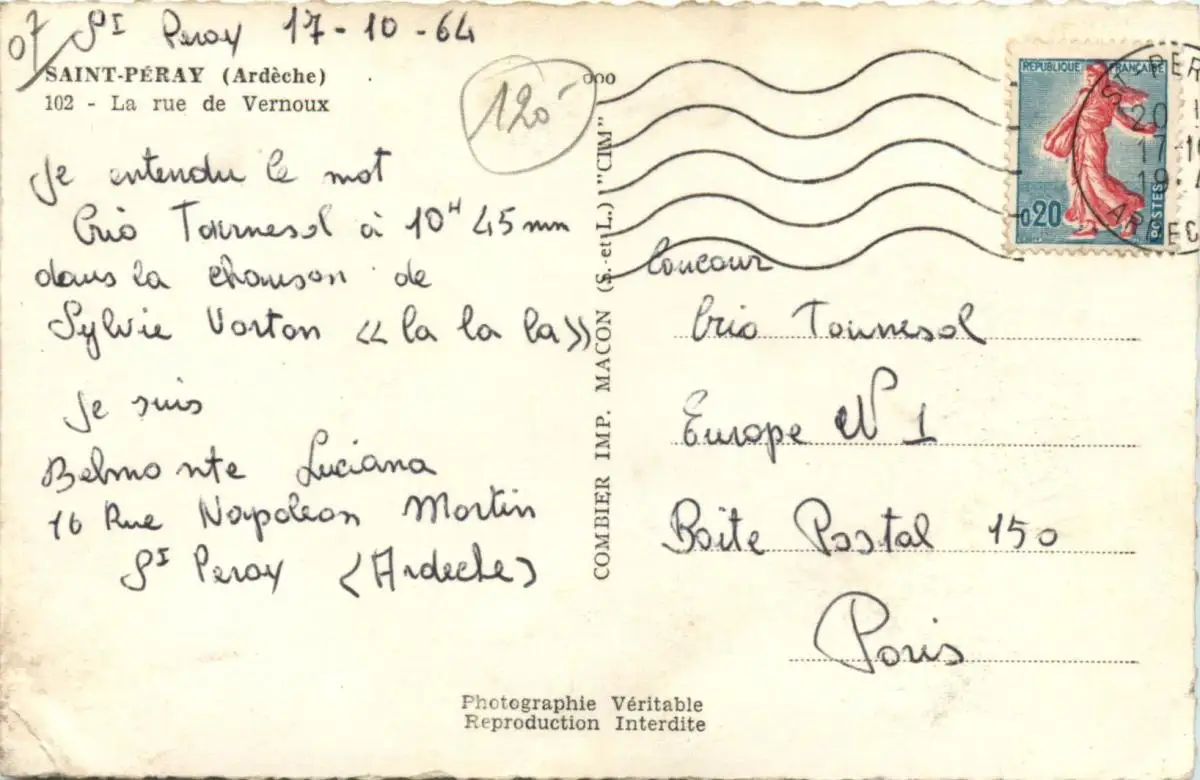 07
St Peray 17-10-64
SAINT-PÉRAY (Ardèche)
102 - La rue de Vernoux
120-
Je entendu le mot
Crio Tournesol à 10H 45 mn
dans la chanson de
Sylvie Vorton « la la la »
Je suis
Belmonte Luciana
16 Rue Napoleon Martin
St Peray (Ardeche)
COMBIER IMP. MACON (S.-et-L.) "CIM"
ooo
REPUBLIQUE FRANÇAISE
0,20
POSTES
ST-PER
20
17-10
19
ARDEC
Concour
Crio Tournesol
Europe N 1
Boite Postal 150
Paris
Photographie Véritable
Reproduction Interdite